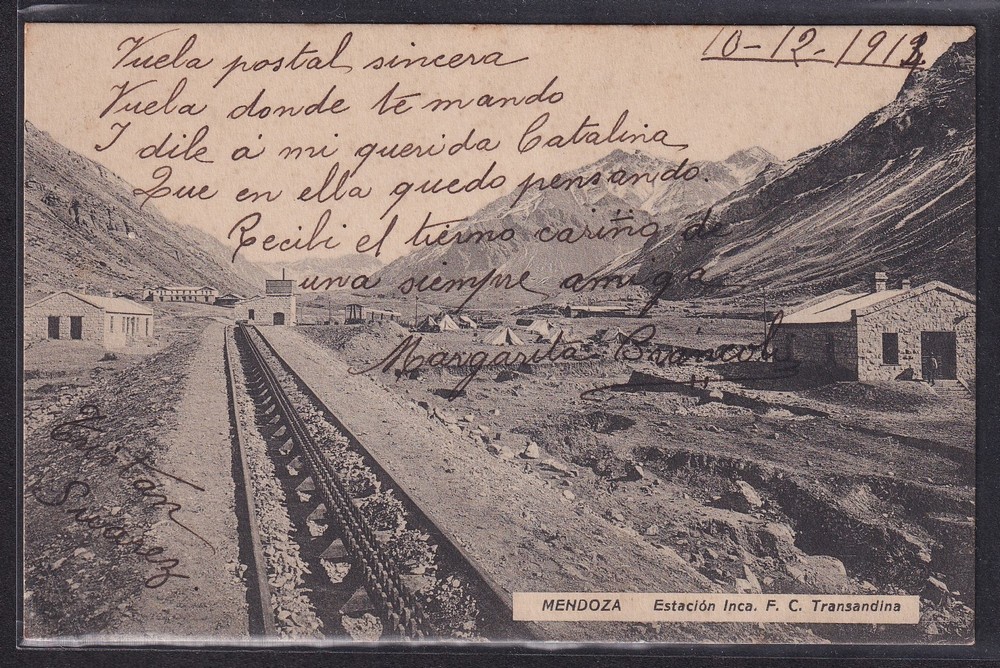 10-12-1913
Vuela postal sincera
Vuela donde te mando
I dile á mi querida Catalina
Que en ella quedo pensando.
Recibi el tierno cariño de
una siempre amiga
Margarita
Suarez
MENDOZA Estación Inca. F. C. Transandina